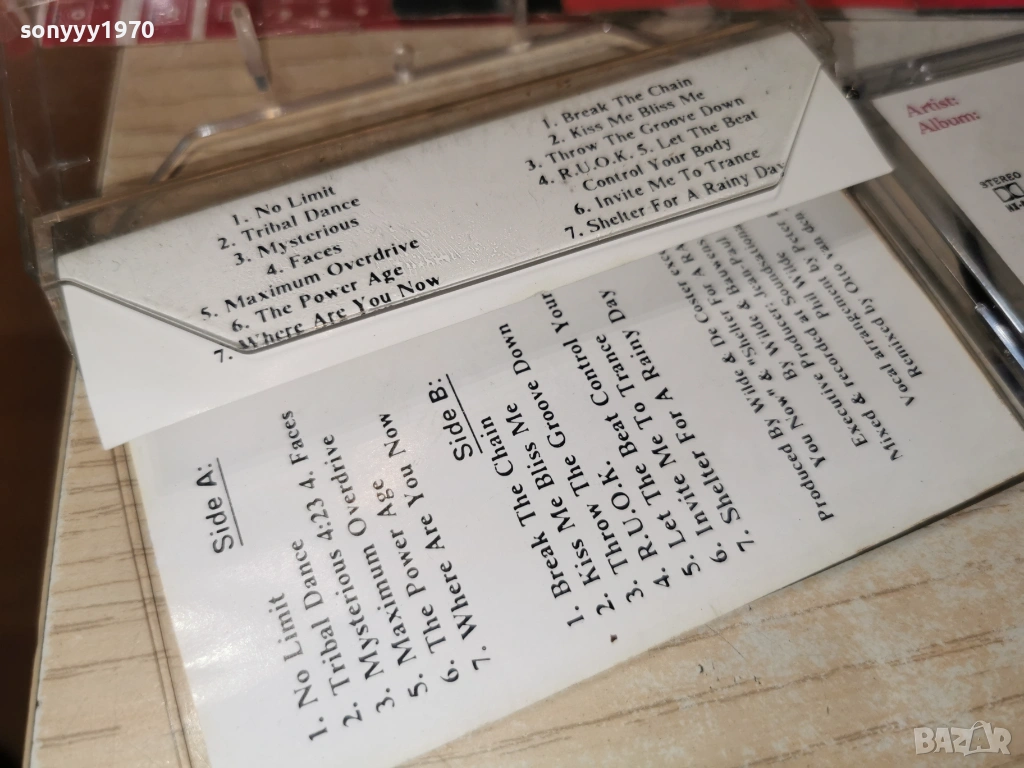 sonyyy1970
1. No Limit
2. Tribal Dance
3. Mysterious
4. Faces
5. Maximum Overdrive
6. The Power Age
7. Where Are You Now
1. Break The Chain
2. Kiss Me Bliss Me
3. Throw The Groove Down
4. R.U.O.K. 5. Let The Beat
Control Your Body
6. Invite Me To Trance
7. Shelter For A Rainy Day
Artist:
Album:
STEREO
Side A:
1. No Limit
2. Tribal Dance
3. Mysterious 4:23 4. Faces
5. Maximum Overdrive
6. The Power Age
7. Where Are You Now
Side B:
1. Break The Chain
2. Kiss Me Bliss Me
3. Throw The Groove Down
4. R.U.O.K.
5. Let The Beat Control Your
6. Invite Me To Trance
7. Shelter For A Rainy Day
Produced By Wilde & De Coster
You Now" & "Shelter For A
By Wilde &
Executive Producer: Jean Paul
Mixed & recorded at
Phil Wilde,
Vocal arrangement by Peter
Remixed by Otto van den
BAZAR